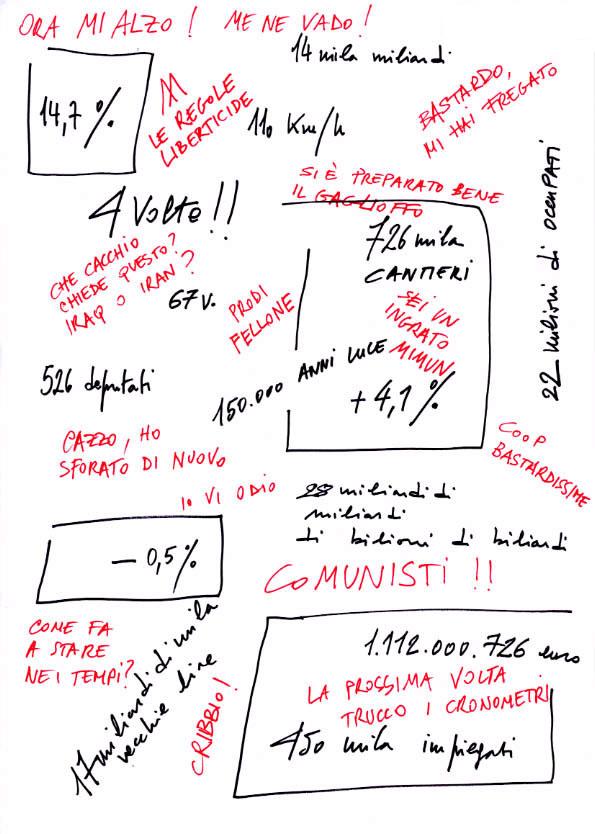 ORA MI ALZO! ME NE VADO!
14 mila miliardi
14,7 %
LE REGOLE
LIBERTICIDE
110 Km/h
BASTARDO,
MI HAI FREGATO
4 Volte!!
SI È PREPARATO BENE
IL GAGLIOFFO
726 mila
CANTIERI
22 milioni di occupati
CHE CACCHIO
CHIEDE QUESTO?
IRAQ O IRAN?
67 v.
PRODI
FELLONE
SEI UN
INGRATO
MIMUN
526 deputati
150.000 ANNI LUCE
+ 4,1 %
CAZZO, HO
SFORATO DI NUOVO
COOP
BASTARDISSIME
IO VI ODIO
28 miliardi di
miliardi
di bilioni di biliardi
- 0,5 %
COMUNISTI!!
COME FA
A STARE
NEI TEMPI?
17 miliardi di mila
vecchie lire
CRIBBIO!
1.112.000.726 euro
LA PROSSIMA VOLTA
TRUCCO I CRONOMETRI
450 mila impiegati